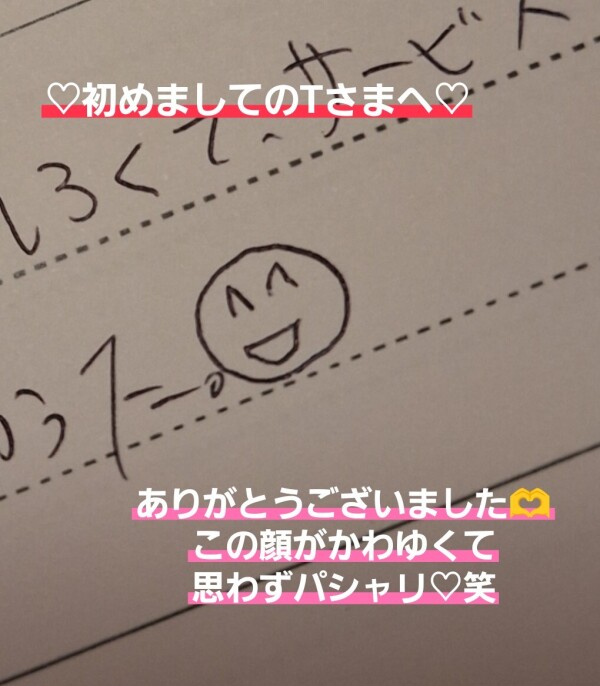 ♡初めましてのTさまへ♡
しろくて、サービ
った。
ありがとうございました🫶
この顔がかわゆくて
思わずパシャリ♡笑